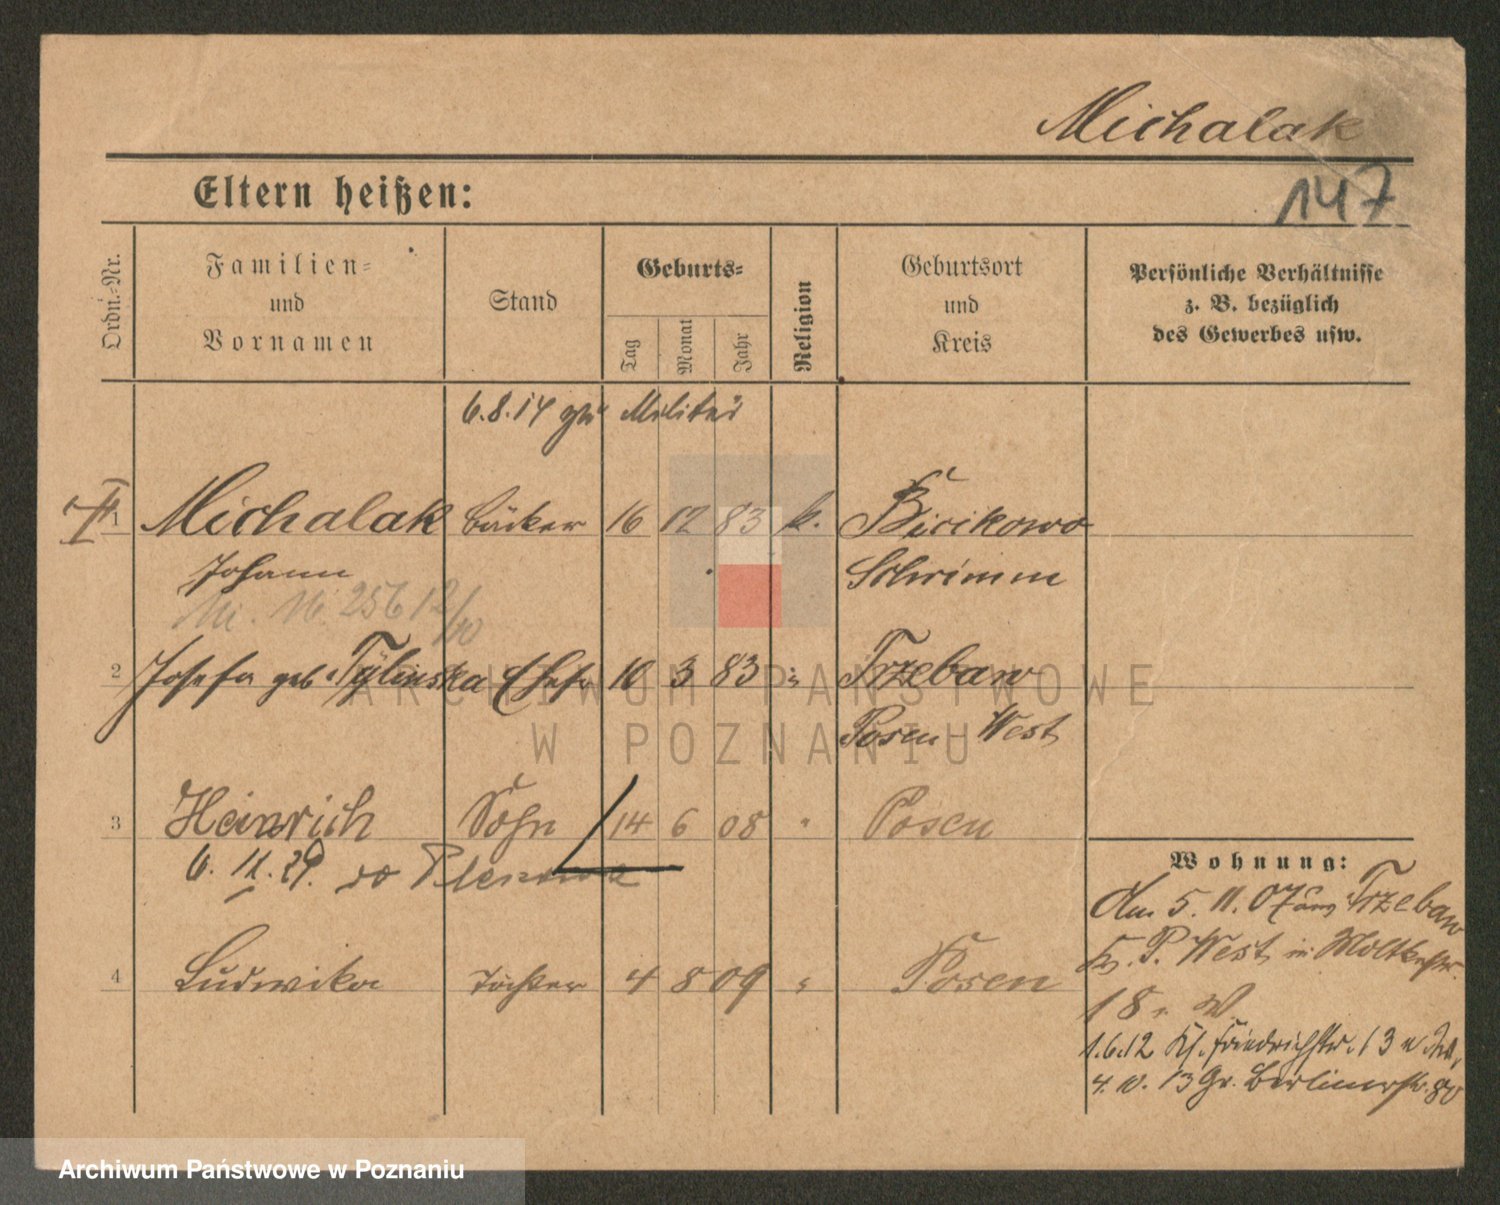 Michalak
147
Eltern heißen:
Ordn.-Nr.
Familien-
und
Vornamen
Stand
Geburts-
Tag
Monat
Jahr
Religion
Geburtsort
und
Kreis
Persönliche Verhältnisse
z. B. bezüglich
des Gewerbes usw.
6.8.14 zu Militär
1 Michalak Bäcker 16 12 83 k.
Johann Schrimm
256 12/10
2 Josefa geb. Tylinska Ehefr 10 3 83 " Trzebaw
Posen West
3 Heinrich Sohn 14 6 08 " Posen
6. 11. 29.
4 Ludwika Tochter 4 8 09 " Posen
Wohnung:
Am 5. 11. 07 aus Trzebaw
Kr. P. West in Moltkestr.
18
1.6.12 Kl. Friedrichstr. 13
4. 10. 13 Gr. Berlinerstr. 80
ARCHIWUM PAŃSTWOWE
W POZNANIU
Archiwum Państwowe w Poznaniu